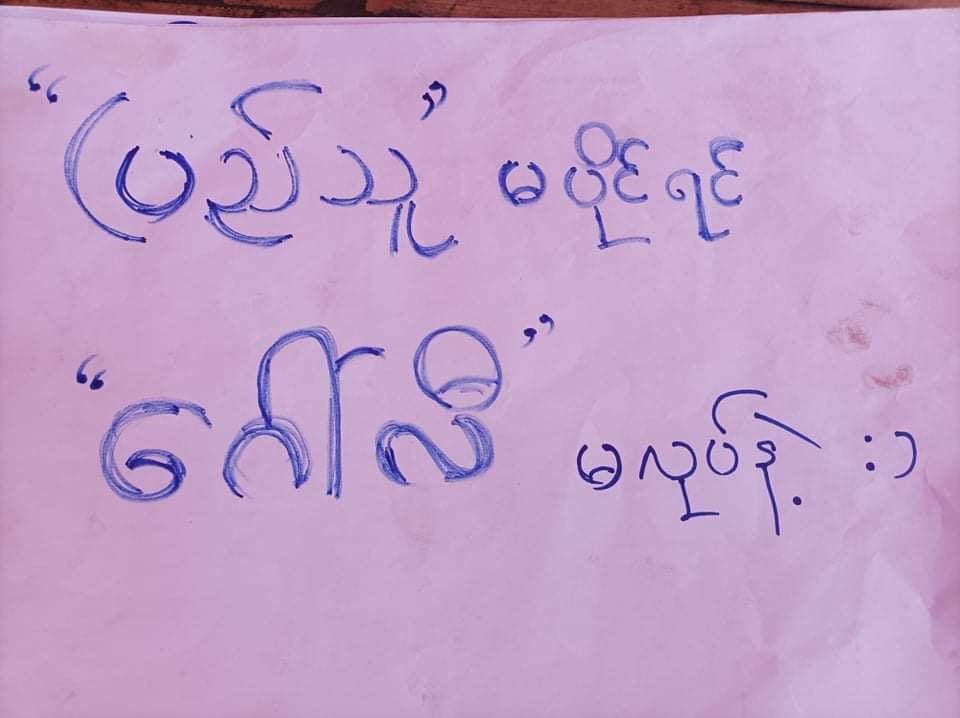 “ပြည်သူ” မပိုင်ရင်
“ဂေါ်လီ” မလုပ်နဲ့ :)